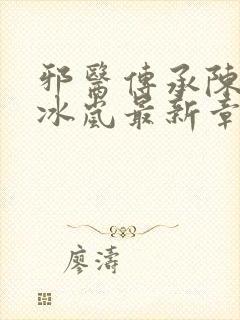 邪醫傳承陳
冰嵐最新章
廖濤